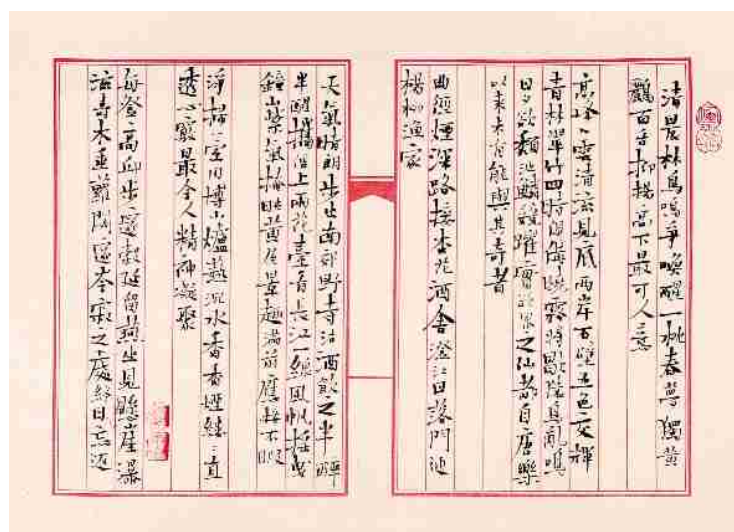 清晨林鳥鳴爭喚醒一枕春夢獨黃
鸝百舌抑揚高下最可人意
高峰入雲清流見底兩岸石壁五色交輝
青林翠竹四時俱備曉霧將歇猿鳥亂鳴
日夕欲頹沉鱗競躍實欲界之仙都自康樂
以來未有能與其奇者
曲徑煙深路接杏花酒舍澄江日落門通
楊柳漁家
天氣晴朗步出南郊野寺沽酒飲之半醉
半醒攜僧上雨花臺看長江一線風帆搖曳
鐘山紫氣掩映黃屋景趣滿前應接不暇
淨掃一室用博山爐爇沉水香香煙縷〻直
透心竅最令人精神凝聚
每登高邱步邃谷延留燕坐見懸崖瀑
流壽木垂蘿閟邃岑寂之處終日忘返